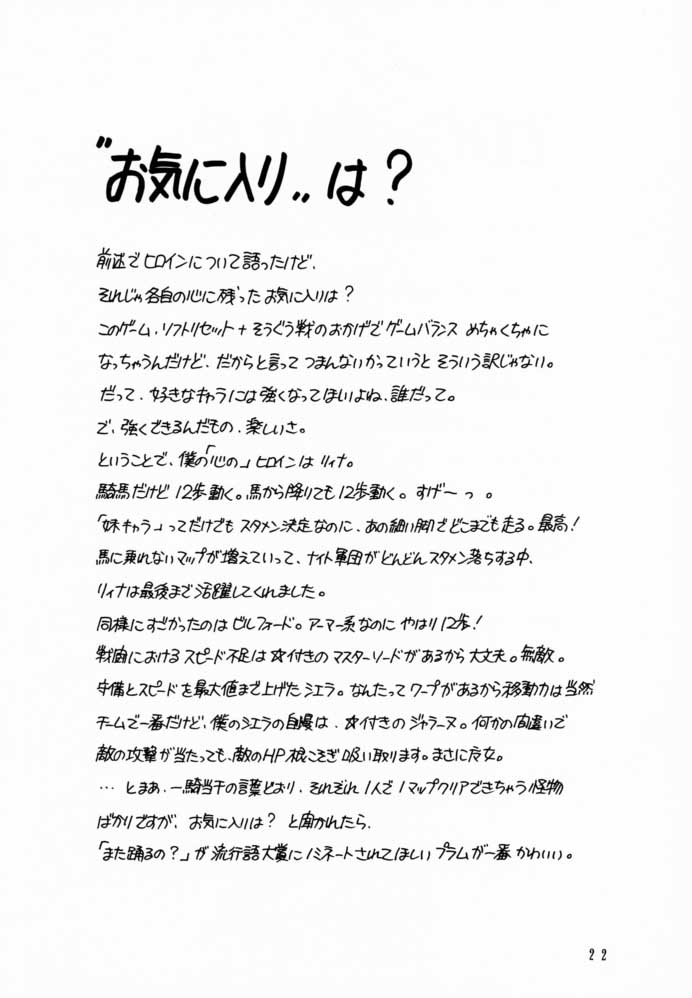 "お気に入り"は？
前述でヒロインについて語ったけど、
それじゃ各自の心に残ったお気に入りは？
このゲーム、ソフトリセット＋そうぐう戦のおかげでゲームバランス めちゃくちゃに
なっちゃうんだけど、だからと言って つまんないかっていうと そういう訳じゃない。
だって、好きなキャラには強くなってほしいよね、誰だって。
で、強くできるんだもの、楽しいさ。
ということで、僕の「心の」ヒロインは リィナ。
騎馬だけど 12歩動く。馬から降りても12歩動く。すげーっ。
「妹キャラ」ってだけでも スタメン決定なのに、あの細い脚でどこまでも走る。最高！
馬に乗れないマップが増えていって、ナイト軍団がどんどんスタメン落ちする中、
リィナは最後まで活躍してくれました。
同様にすごかったのは ビルフォード。アーマー系なのに やはり12歩！
戦闘における スピード不足は☆付きの マスターソードがあるから大丈夫。無敵。
守備とスピードを最大値まで上げた シエラ。なんたって ワープがあるから移動力は当然
チームで一番だけど、僕のシエラの自慢は、☆付きのジャラーヌ。何かの間違いで
敵の攻撃が当たっても、敵のHP 根こそぎ吸い取ります。まさに魔女。
… とまあ、一騎当千の言葉どおり、それぞれ 1人で 1マップクリアできちゃう怪物
ばかりですが、お気に入りは？ と聞かれたら、
「また踊るの？」が 流行語大賞にノミネートされてほしい プラムが一番 かわいい。
22